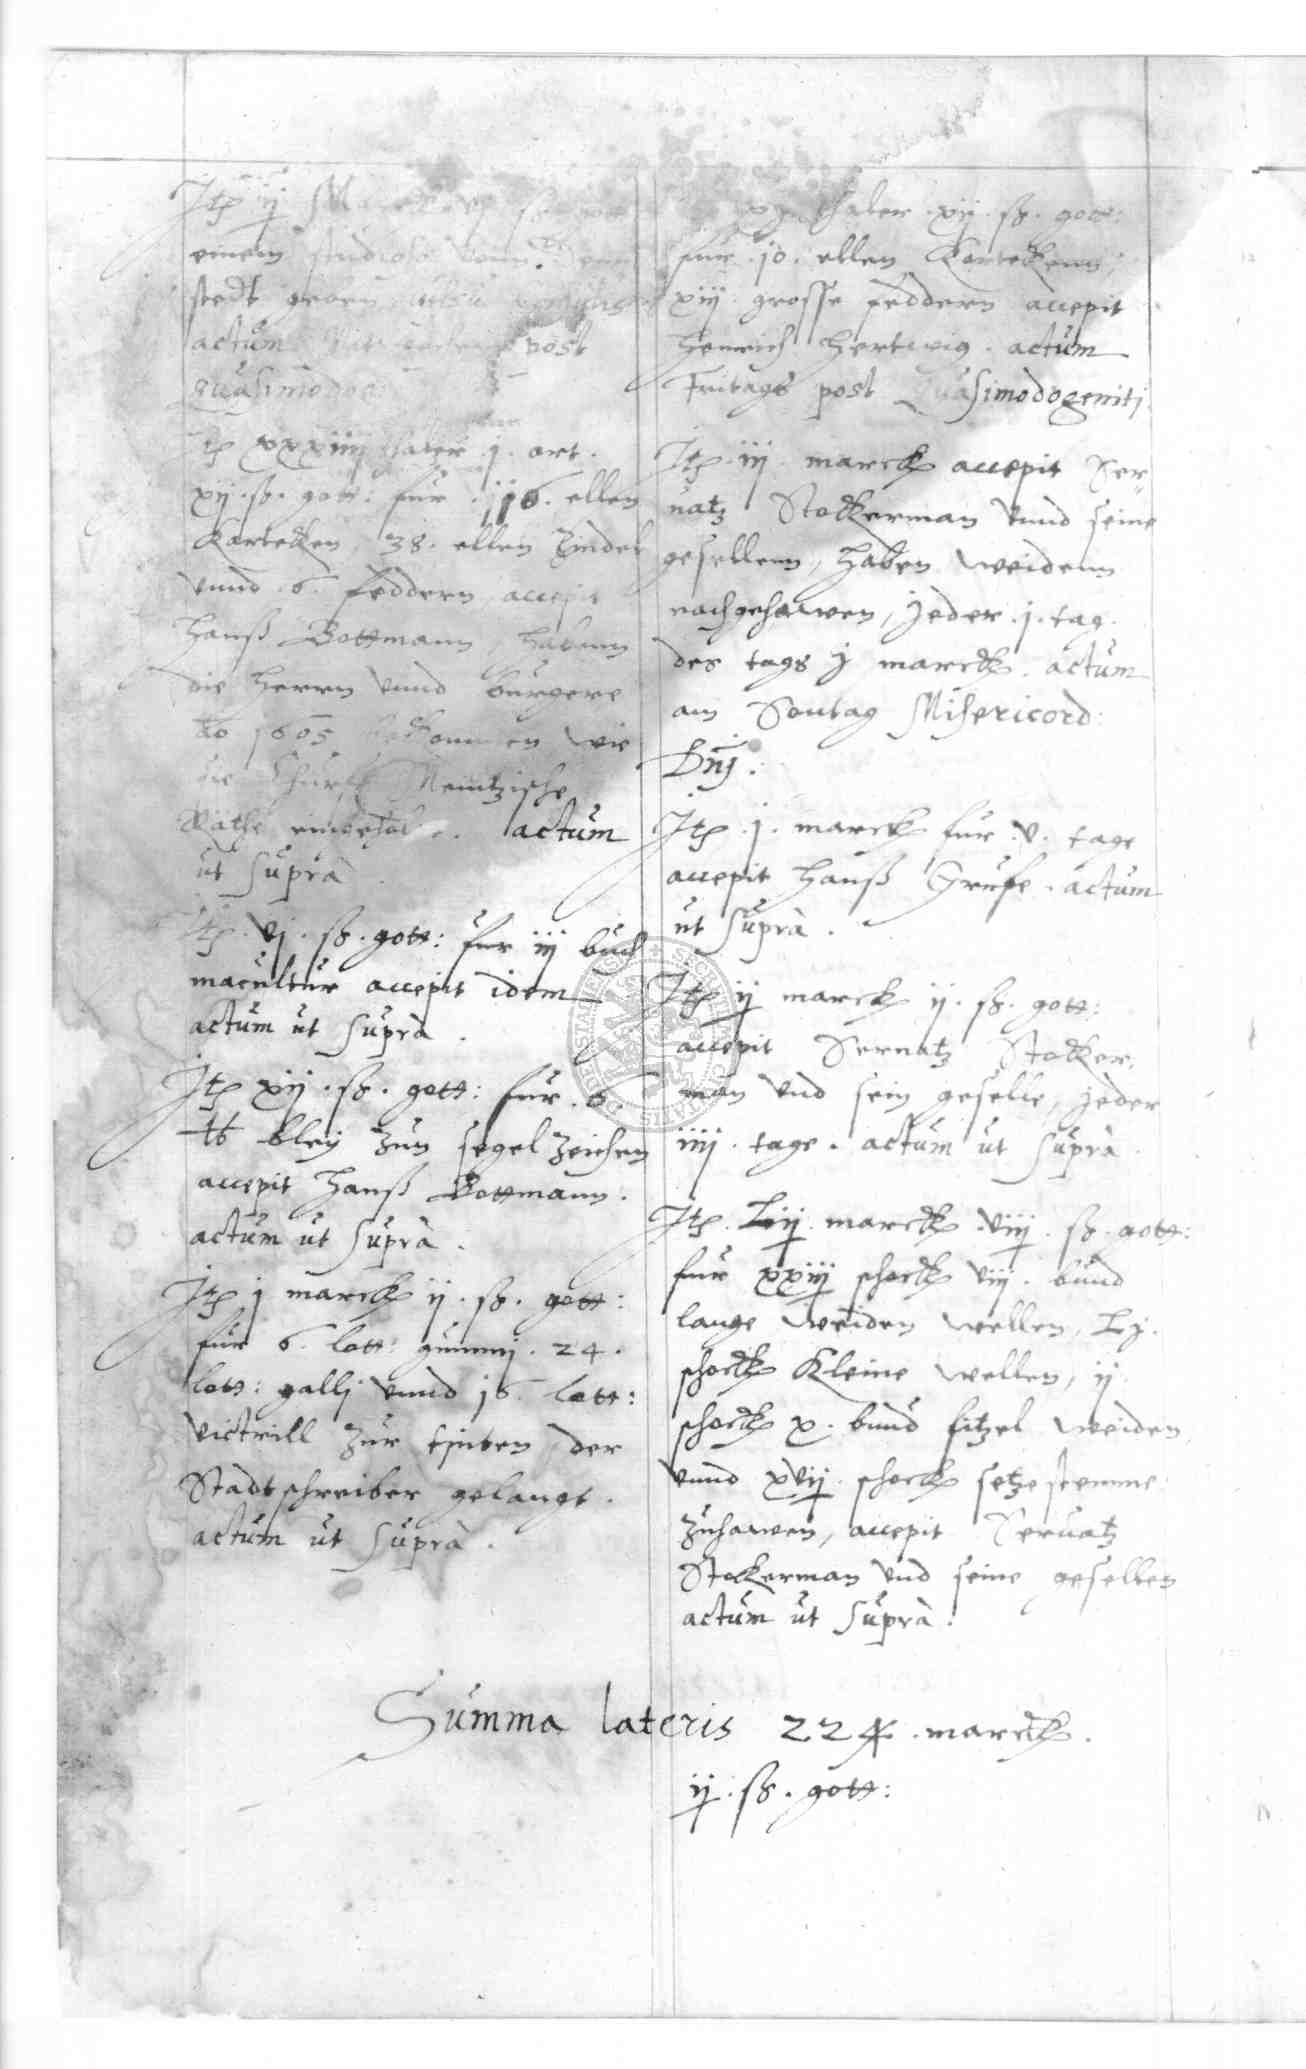 Jtem ij
einem studioso
stedt geben
actum post
quasimodog
Jtem xxxiiij thaler j. ort.
xij. ß. gott: fur 116. ellen
Kartecken, 38. ellen Zindel
vnnd 6. feddern, accepit
Hanß Bottmann, habenn
die Herrn vnnd burgere
ao 1605 bekommen wie
die Churf. Meintzische
Räthe actum
ut supra
Jtem. vj. ß. gott: fur iij buch
macultur accepit idem
actum ut supra.
Jtem xij. ß. gott: fur. 6.
℔ bley zun segel zeichen
accepit Hanß Bottmann.
actum ut supra.
Jtem j marck ij. ß. gott:
fur 6. lott: gummj. 24.
lott: gallj vnnd 16. lott:
victrill zur tinten, der
Stadtschreiber gelangt.
actum ut supra.
thaler. xij. ß. gott:
fur. 10. ellen Karteckenn,
xiij grosse feddern accepit
Henrich Hertwig. actum
Fritags post Quasimodogeniti.
Jtem. iij. marck accepit Ser-
uatz Stockerman vnnd seine
gesellenn, haben weidenn
nachgehawen, jeder. j. tag.
des tags j marck. actum
am Sontag Misericord:
Dnj.
Jtem. j. marck fur. v. tage
accepit Hanß Grufe. actum
ut supra.
Jtem ij marck ij. ß. gott:
accepit Seruatz Stocker-
man vnd sein geselle, jeder
iiij. tage. actum ut supra.
Jtem. Lij marck viij. ß. gott:
fur xxiij schock viij. bund
lange weiden wellen, Lj.
schock Kleine wellen, ij.
schock x. bund fitzel weiden
vnnd xvij. schock setzestemme
zuhawen, accepit Seruatz
Stockerman vnd seine gesellen
actum ut supra.
Summa lateris 224. marck.
ij. ß. gott: